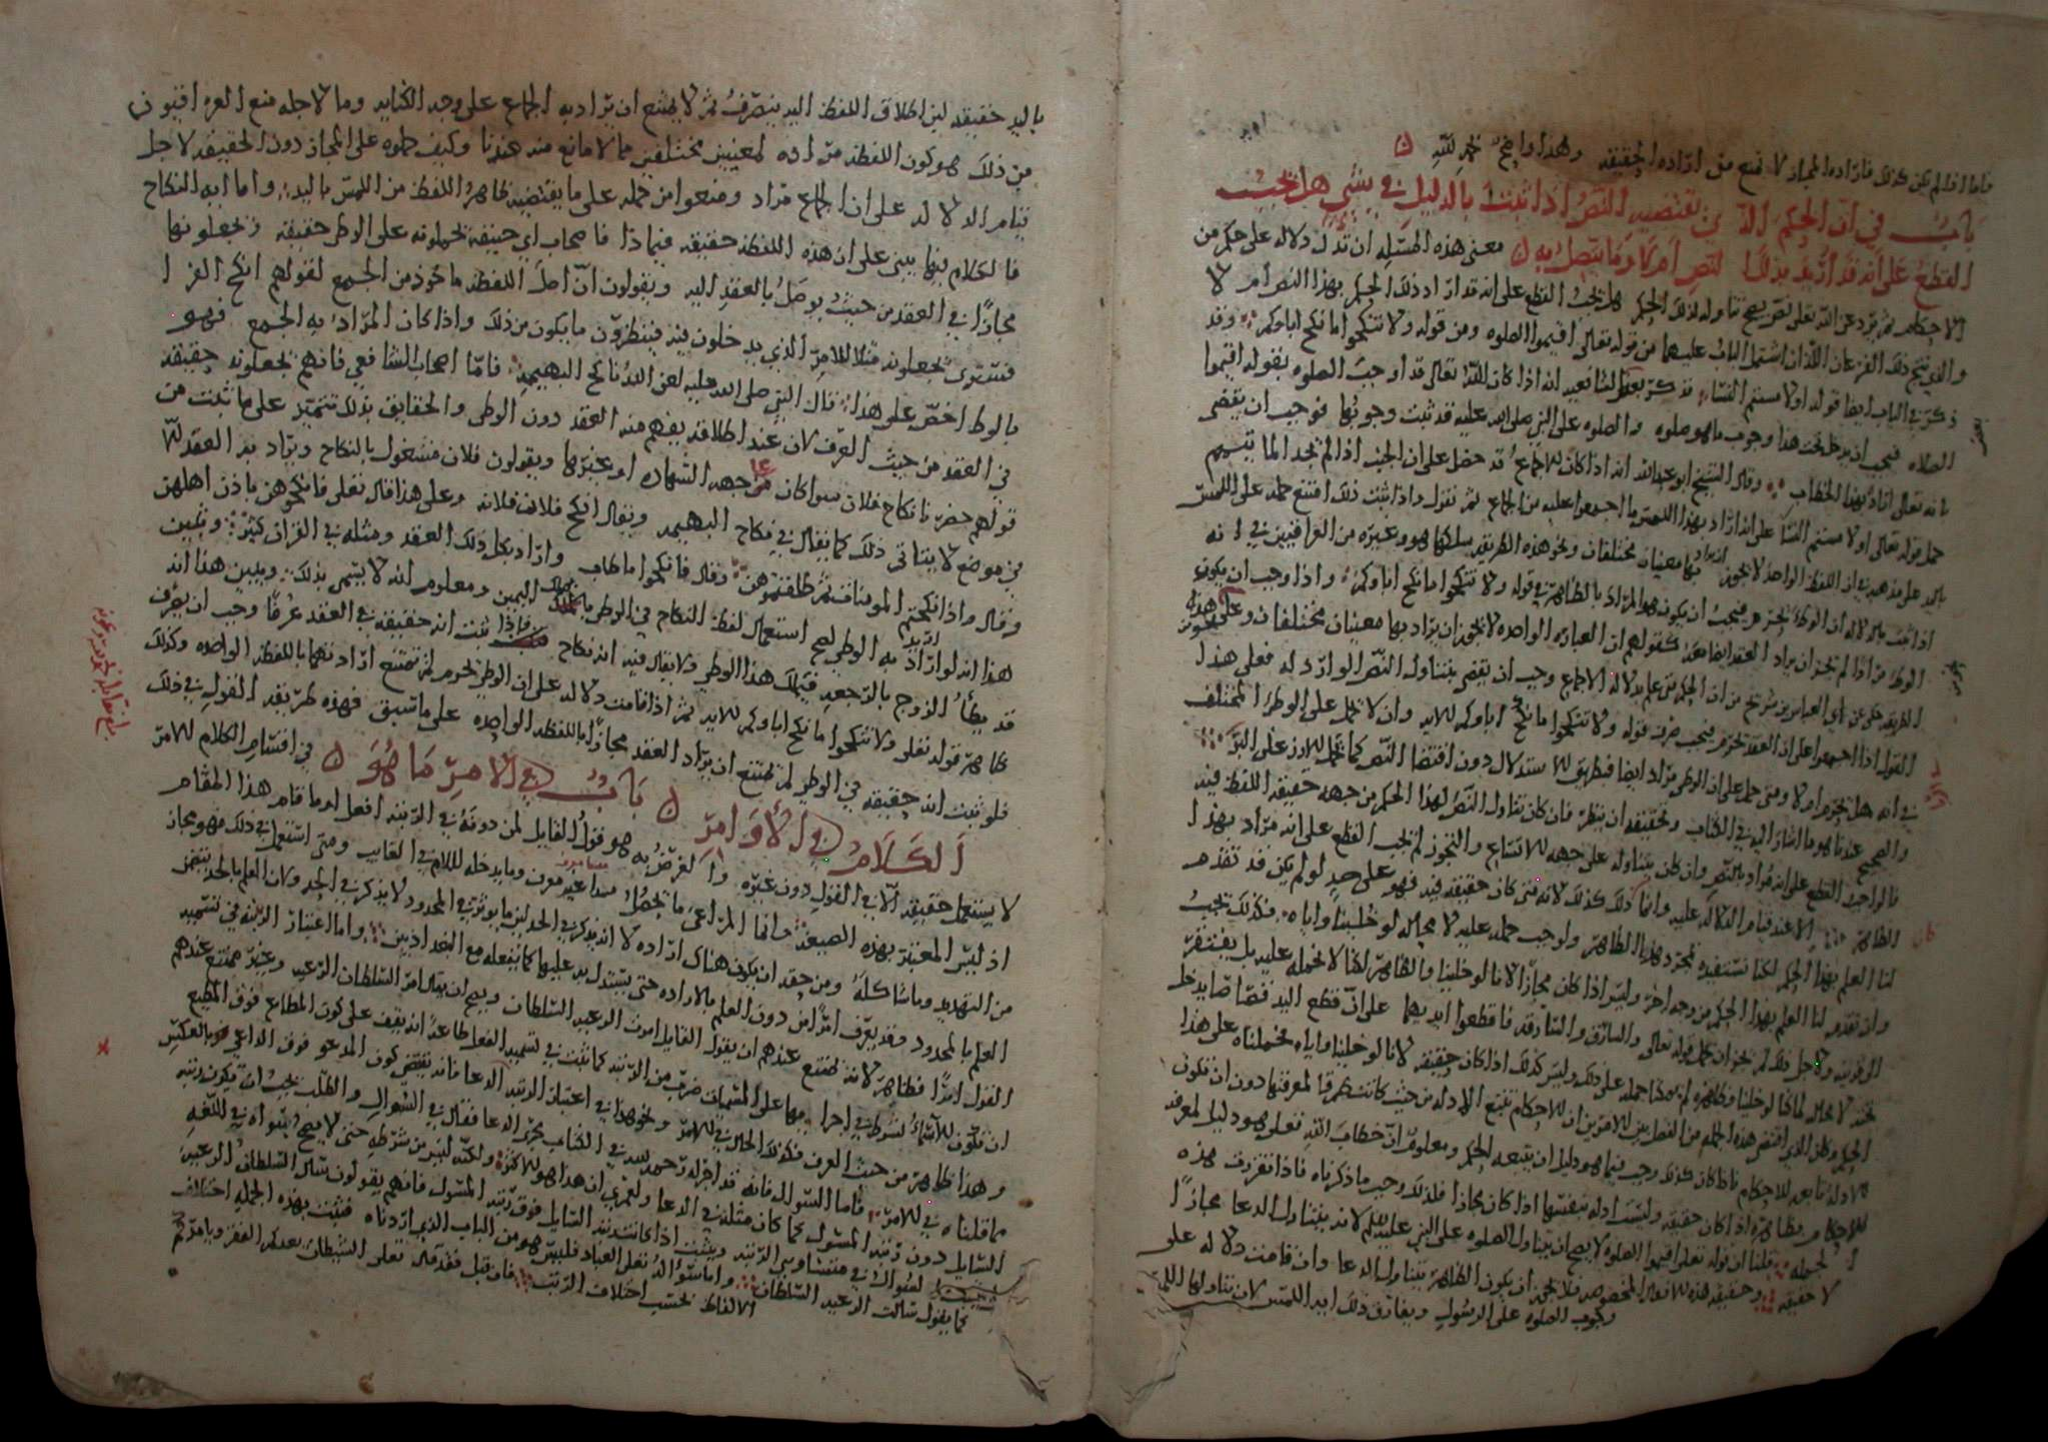 فاما اذا لم يكن كذلك فاراده المجاز لا تمنع من اراده الحقيقه وهذا واضح بحمد الله
باب في ان الحكم الذي يقتضيه النص اذا ثبت بالدليل في شي هل يجب
القطع على انه قد اريد بذلك النص ام لا وما يتصل به معنى هذه المسله ان تدل دلاله على حكم من
الاحكام ثم يرد عن الله تعلى نص يصح تناوله لذلك الحكم هل يجب القطع على انه قد اراد ذلك الحكم بهذا النص ام لا
والذي ينتج ذلك الفرعان اللذان اشتمل الباب عليهما من قوله تعالى اقيموا الصلوه ومن قوله ولا تنكحوا ما نكح اباوكم وقد
ذكر في الباب ايضا قوله او لامستم النساء فذكر بعض الشافعيه انه اذا كان الله تعالى قد اوجب الصلوه بقوله اقيموا
الصلاه فيجب ان يدخل تحت هذا وجوب ما هو صلوه والصلوه على النبي صلى الله عليه قد ثبت وجوبها فوجب ان يقضى
بانه تعالى اراد بهذا الخطاب وقال الشيخ ابو عبدالله انه اذا كان الاجماع قد حصل على ان الجنب اذا لم يجد الما تيمم
حمل قوله تعالى او لامستم النسا على انه اراد بهذا اللمس ما اجمعوا عليه من الجماع ثم نقول واذا ثبت ذلك امتنع حمله على اللمس
باليد على مذهبه في ان اللفظ الواحد لا يجوز ان يراد بها معنيان مختلفان ونحو هذه الطريقه سلكها هو وغيره من العراقيين في انه
اذا ثبت بالدلاله ان الوطء يحرم فيجب ان يكون هو المراد بالظاهر في قوله ولا تنكحوا ما نكح اباوكم واذا وجب ان يكون
الوطء مرادا لم يجز ان يراد العقد ايضا معه كقولهم ان العباره الواحده لا يجوز ان يراد بها معنيان مختلفان وعلى هذه
الطريقه حكي عن ابي العباس بن سريج من ان الحكم متى علم بدلاله الاجماع وجب ان يقضى بتناول النص الوارد له فعلى هذا
القول اذا اجمعوا على ان العقد يحرم فيجب صرف قوله ولا تنكحوا ما نكح اباوكم للابد وان لا يحمل على الوطء المختلف
في انه هل يحرم ام لا ومتى حمل على ان الوطي مراد ايضا فبطريق الاستدلال دون اقتضا النص كما يحمل الارز على البر
والصحيح عندنا هو ما اشار اليه في الكتاب وتحقيقه ان ينظر فان كان تناول النص لهذا الحكم من جهه حقيقه اللفظ فيه
فالواجب القطع على انه مراد بالنص وان كان يتناوله على جهه الاتساع والتجوز لم يجب القطع على انه مراد بهذا
الظاهر الا عند قيام الدلاله عليه وانما ذلك كذلك لانه متى كان حقيقه فيه فهو على حد لو لم يكن قد تقدم
لنا العلم بهذا الحكم لكنا نستفيده بمجرد هذا الظاهر ولوجب حمله عليه لا محاله لو خلينا واياه فكذلك يجب
وان تقدم لنا العلم بهذا الحكم من وجه اخر وليس اذا كان مجازا لانا لو خلينا والظاهر لكنا لا نحمله عليه بل يفتقر
الى قرينه ولاجل ذلك لم يجز ان يحمل قوله تعالى والسارق والسارقه فاقطعوا ايديهما على ان قطع اليد قصاصا يدخل
تحته لا محاله لما كنا لو خلينا وظاهره لم يمكنا حمله على ذلك وليس كذلك اذا كان حقيقه لانا لو خلينا واياه لحملناه على هذا
الحكم
للاحكام وظاهره اذا كان حقيقه وليست ادله بنفسها اذا كان مجازا فلذلك وجب ما ذكرناه فاذا تقررت هذه
الجمله قلنا ان قوله تعلى اقيموا الصلوه لا يصح ان يتناول الصلوه على النبي عليه السلم لانه يتناول الدعا مجازا
لا حقيقه وحقيقه هذه الافعال المخصوصه فلا يجوز ان يكون الظاهر يتناول الدعا وان قامت دلاله على
وجوب الصلوه على الرسول ويفارق ذلك ايه اللمس لان تناولها اللمس
باليد حقيقه لان اطلاق اللفظ اليه ينصرف ثم لا يمتنع ان يراد به الجماع على وجه الكنايه وما لاجله منع العراقيون
من ذلك هو كون اللفظه مراده لمعنيين مختلفين مما لا مانع منه عندنا وكيف حملوه على المجاز دون الحقيقه لاجل
قيام الدلاله على ان الجماع مراد ومنعوا من حمله على ما يقتضيه ظاهر اللفظ من اللمس باليد واما ايه النكاح
فالكلام فيها يبنى على ان هذه اللفظه حقيقه فيماذا فاصحاب ابي حنيفه يحملونه على الوطي حقيقه ويجعلونها
مجازا في العقد من حيث يوصل بالعقد اليه ويقولون ان اصل اللفظه ماخوذ من الجمع لقولهم انكح الفرا
فسترى يجعلونه مثلا للامر الذي يدخلون فيه فينظرون ما يكون من ذلك واذا كان المراد به الجمع فهو
بالوطي اخص على هذا قال النبي صلى الله عليه لعن الله ناكح البهيمه فاما اصحاب الشافعي فانهم يجعلونه حقيقه
في العقد من حيث العرف لان عند اطلاقه يفهم منه العقد دون الوطي والحقايق بذلك تتميز على ما ثبت من
قولهم حضرنا نكاح فلان سوا كان على جهه الشهاده او غيرها ويقولون فلان مشغول بالنكاح ويراد به العقد لا
في موضع لا يتاتى ذلك كما يقال في نكاح البهيمه ويقال انكح فلان فلانه وعلى هذا قال تعلى فانكحوهن باذن اهلهن
وقال واذا نكحتم المومنات ثم طلقتموهن وقال فانكحوا ما طاب واراد بكل ذلك العقد ومثله في القران كثير ويبين
هذا انه لو اريد به الوطي لصح استعمال لفظ النكاح في الوطي بملك اليمين ومعلوم انه لا يسمى بذلك ويبين هذا انه
قد يطأ الزوج بالرجعيه فيملك هذا الوطي ولا يقال فيه انه نكاح فاذا ثبت انه حقيقه في العقد عرفا وجب ان يصرف
ظاهر قوله تعلى ولا تنكحوا ما نكح اباوكم للابد ثم اذا قامت دلاله على ان الوطي يحرم لم يمتنع ارادتهما باللفظه الواحده وكذلك
فلو ثبت انه حقيقه في الوطي لم يمتنع ان يراد العقد مجازا باللفظه الواحده على ما سبق فهذه طريقه القول في ذلك
الكلام في الاوامر باب في الامر ما هو في اقسام الكلام للامر
لا يستعمل حقيقه الا في القول دون غيره والغرض به هو قول القايل لمن دونه في الرتبه افعل او ما قام هذا المقام
اذ ليس المعتبر بهذه الصيغه وانما المراعى ما يحصل وما يدخله اللام في الغايب ومتى استعمل في ذلك فهو مجاز
من التهديد وما شاكله ومن حقه ان يكون هناك اراده لا انه يذكر في الحد لان ما يوثر في المحدود لا يذكر في الحد ولان العلم بالحد يتضمن
العلم بالمحدود وقد يعرف امرا من دون العلم بالاراده حتى يستدل به عليها كما نفعله مع البغداديين واما اعتبار الرتبه في تسميه
القول امرا فظاهر لانه يمتنع عندهم ان يقول القايل امرت الرعيه السلطان ويصح ان يقال امر السلطان الرعيه وغير ممتنع عندهم
ان تكون للاسماء شروط في اجرايها على المسميات ضرب من الرتبه كما ثبت في تسميه الفعل طاعه انه يقف على كون المطاع فوق المطيع
وهذا ظاهر من حيث العرف فكذلك الحال في الامر ونحو هذا في اعتبار الرتبه الدعا فانه يقتضي كون المدعو فوق الداعي هو بالعكس
مما قلناه في الامر فاما السوال فانه قد اجراه رحمه الله في الكتاب مجرى الدعا فقال في السوال والطلب يجب ان تكون رتبه
السايل دون رتبه المسول كما كان مثله في الدعا ولعمري ان هذا هو الاكثر ولكنه ليس من شرطه حتى لا يصح سواه في اللغه
لصح السوال في متساويي الرتبه ويثبت اذا كانت رتبه السايل فوق رتبه المسول فانهم يقولون سال السلطان الرعيه
كما يقول سالت الرعيه السلطان واما سؤال الله تعلى العباد فليس هو من الباب الذي اردناه فثبت بهذه الجمله اختلاف
الالفاظ بحسب اختلاف الرتب فان قيل فقد قال تعلى الشيطان يعدكم الفقر ويامركم